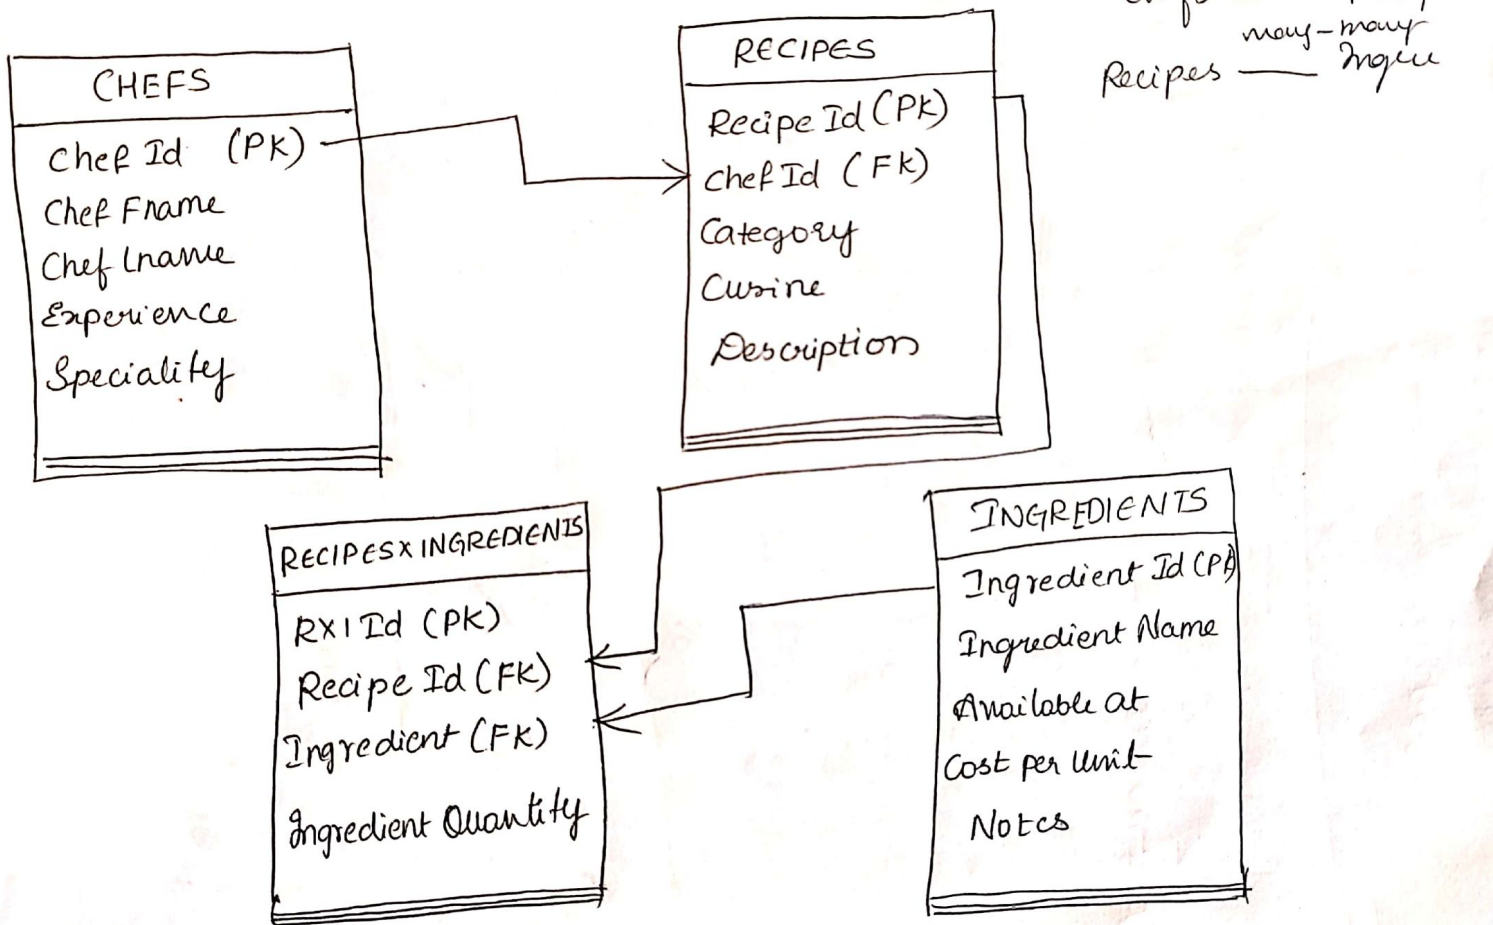 many-many
Recipes —
CHEFS
Chef Id (PK)
Chef Fname
Chef Lname
Experience
Speciality
RECIPES
Recipe Id (PK)
Chef Id (FK)
Category
Cusine
Description
RECIPES X INGREDIENTS
RXI Id (PK)
Recipe Id (FK)
Ingredient (FK)
Ingredient Quantity
INGREDIENTS
Ingredient Id (PK)
Ingredient Name
Available at
Cost per Unit
Notes